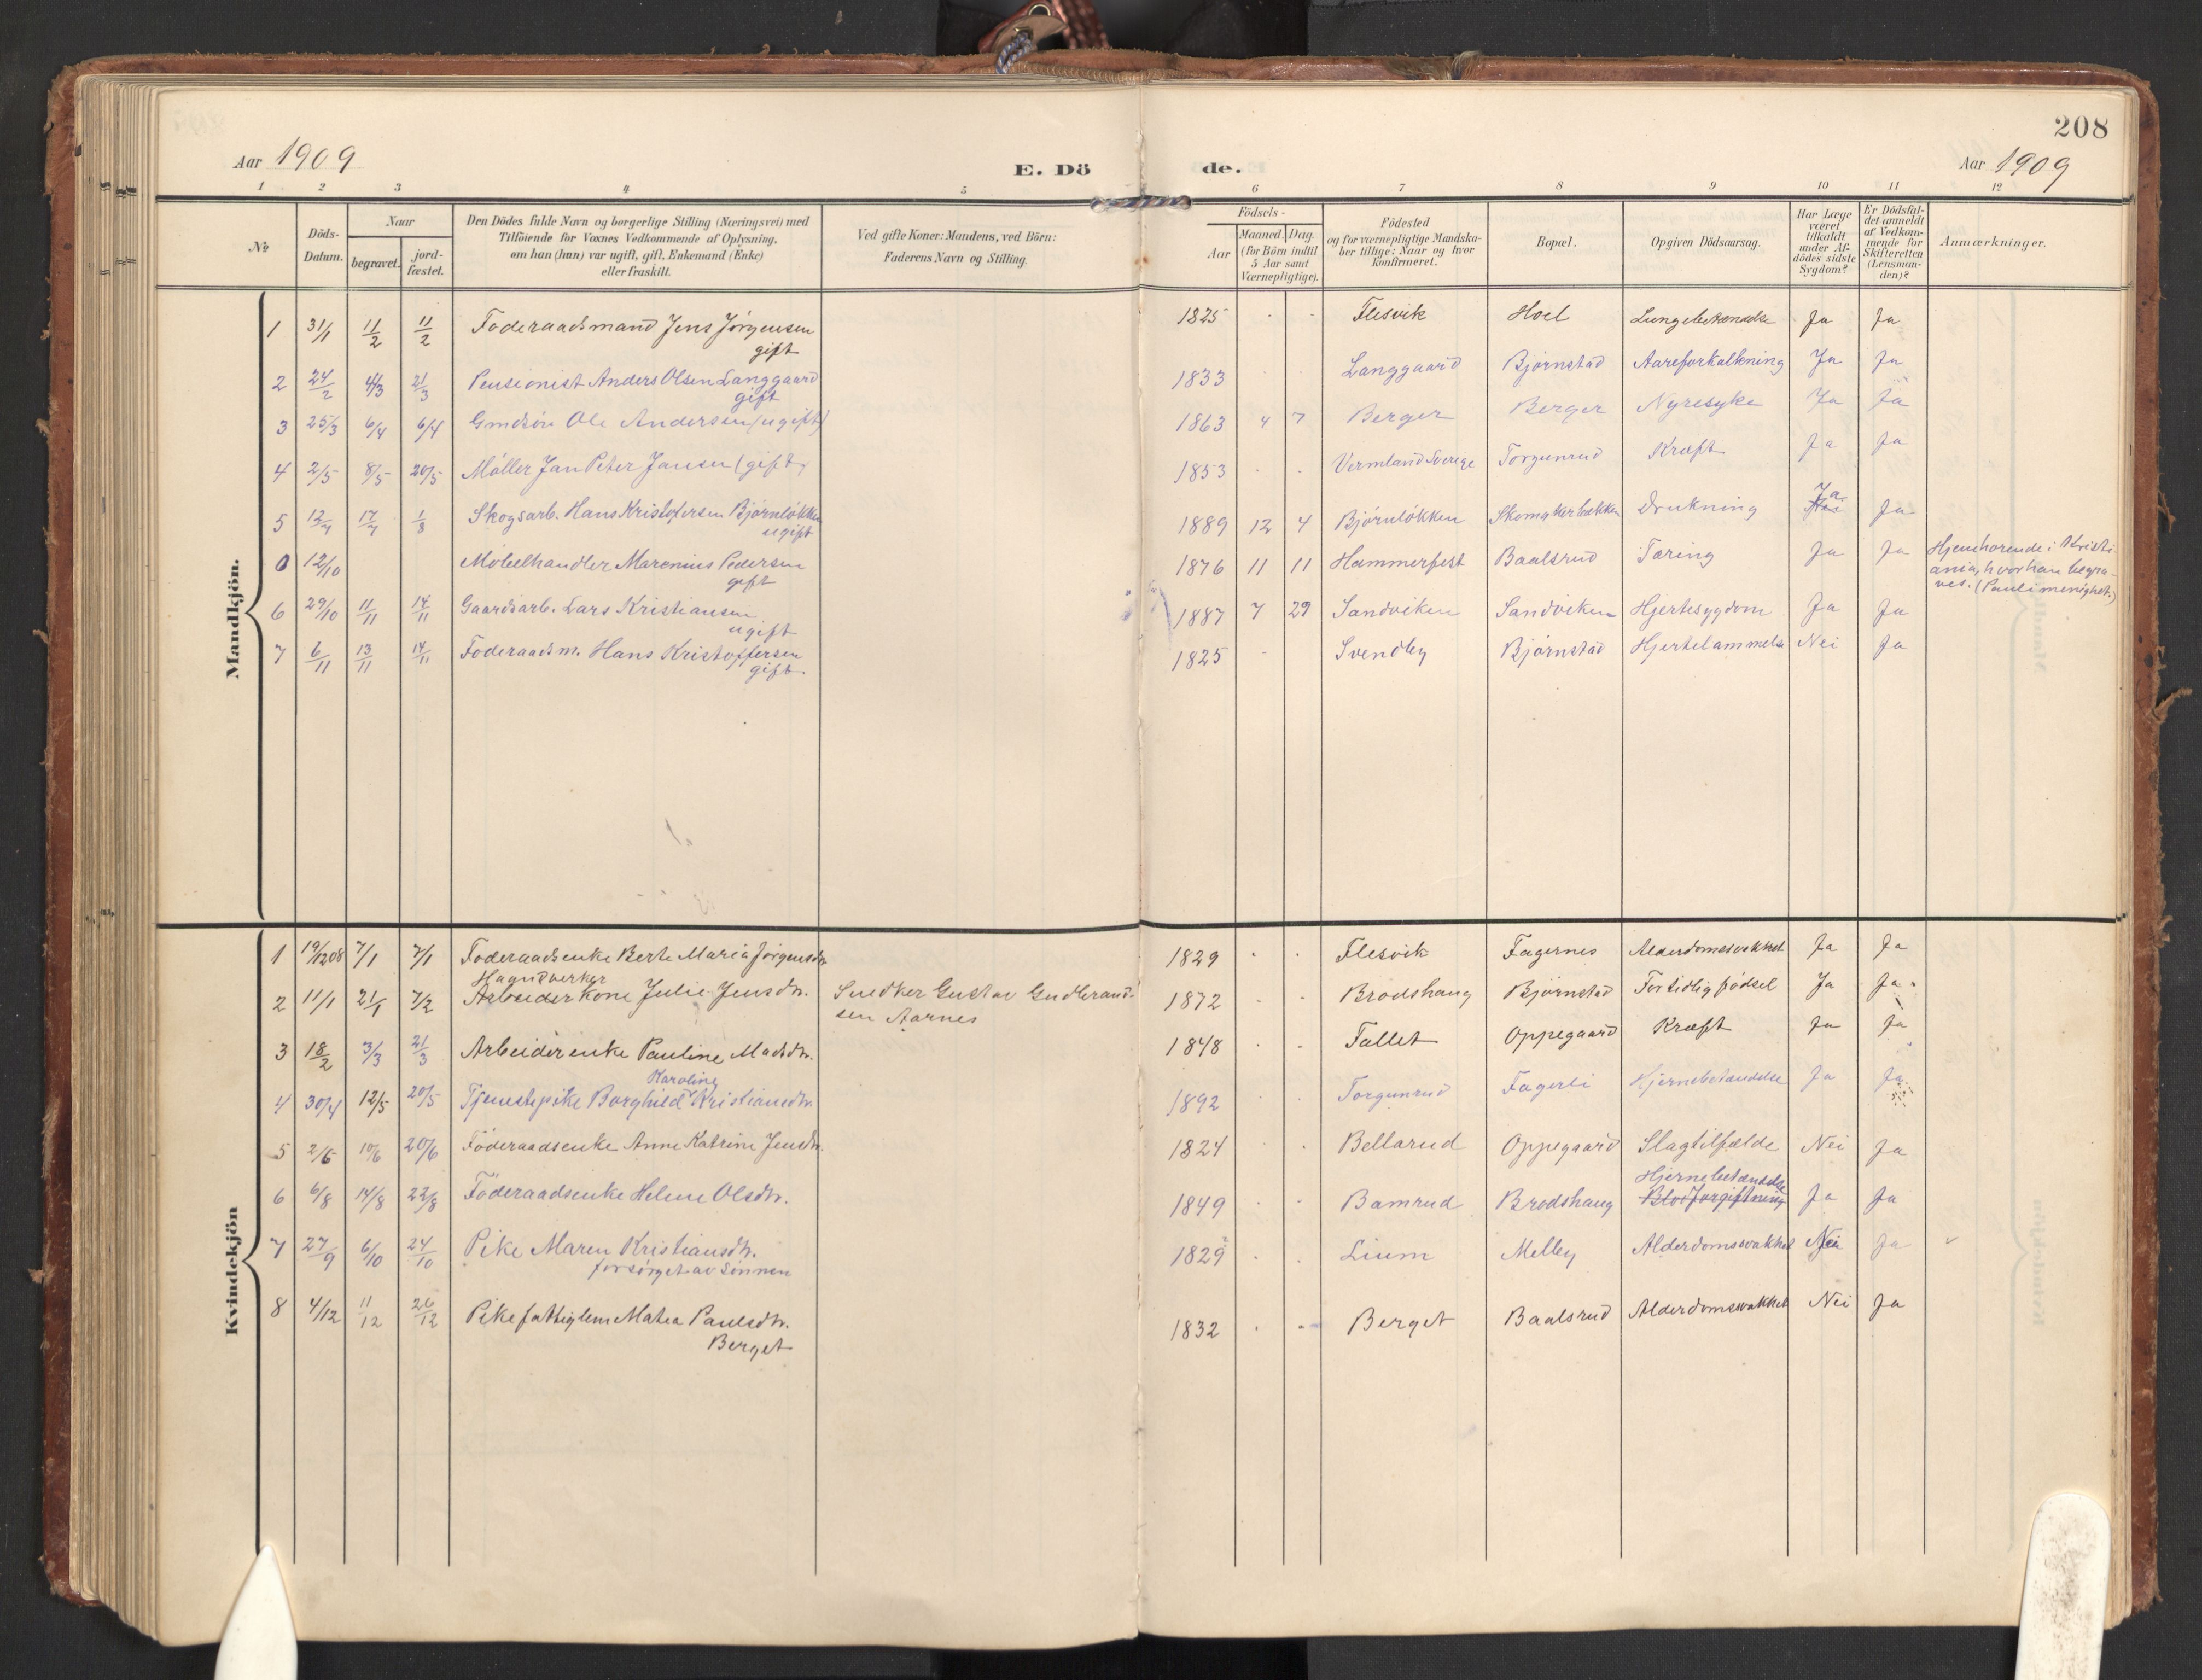 208
Aar 1909
E. Dö
de.
Aar 1909
1 2 3 4 5 6 7 8 9 10 11 12
No
Döds-Datum.
Naar
begravet.
jord-fæstet.
Den Dödes fulde Navn og borgerlige Stilling (Næringsvei) med
Tilföiende for Voxnes Vedkommende af Oplysning,
om han (hun) var ugift, gift, Enkemand (Enke)
eller fraskilt.
Ved gifte Koner: Mandens, ved Börn:
Faderens Navn og Stilling.
Födsels-
Aar
Maaned. Dag.
(for Börn indtil
5 Aar samt
Værnepligtige).
Födested
og for værnepligtige Mandska-
ber tillige: Naar og hvor
Konfirmeret.
Bopæl.
Opgiven Dödsaarsag.
Har Læge
været
tilkaldt
under Af-
dödes sidste
Sygdom?
Er Dödsfal-
det anmeldt
af Vedkom-
mende for
Skifteretten
(Lensman-
den)?
Anmærkninger.
Mandkjön.
1 31/1 11/2 11/2 Föderaadsmand Jens Jörgensen 1825 Flesvik Hoel Lungebetændelse Ja Ja
gift
2 24/2 4/3 21/3 Pensionist Anders Olsen Langgaard 1833 Langgaard Björnstad Aareforkalkning Ja Ja
gift
3 25/3 6/4 6/4 Gmdsön Ole Andersen (ugift) 1863 4 7 Berger Berger Nyresyke Ja Ja
4 2/5 8/5 20/5 Möller Jan Peter Jansen (gift) 1853 Vermland Sverige Torgunrud Kræft Ja Ja
5 12/7 17/7 1/8 Skogsarb. Hans Kristofersen Björnlökken 1889 12 4 Björnlökken Skomakerbakken Drukning Ja Ja
ugift
0 12/10 Möbelhandler Marenius Pedersen 1876 11 11 Hammerfest Baalsrud Tæring Ja Ja Hjemhörende i Kristi-
gift ania, hvor han begra-
ves. (Pauli menighet.)
6 29/10 11/11 14/11 Gaardsarb. Lars Kristiansen 1887 7 29 Sandviken Sandviken Hjertesygdom Ja Ja
ugift
7 6/11 13/11 14/11 Föderaadsm. Hans Kristoffersen 1825 Svendby Björnstad Hjertelammelse Nei Ja
gift
Kvindekjön
1 19/12 08 7/1 7/1 Föderaadsenke Berte Maria Jörgensdtr. 1829 Flesvik Fagernes Alderdomssvakhet Ja Ja
Haandverker
2 11/1 21/1 7/2 Arbeider Kone Julie Jensdtr. Snedker Gustav Gudbrand- 1872 Brodshaug Björnstad For tidlig födsel Ja Ja
sen Aarnes
3 18/2 3/3 21/3 Arbeiderenke Pauline Madsdtr. 1848 Tallet Oppegaard Kræft Ja Ja
Karoline
4 30/4 12/5 20/5 Tjenestepike Borghild Kristiansdtr. 1892 Torgunrud Fagerli Hjernebetændelse Ja Ja
5 2/6 10/6 20/6 Föderaadsenke Anne Katrine Jensdtr. 1824 Bellarud Oppegaard Slagtilfælde Nei Ja
Hjernebetændelse
6 6/8 14/8 22/8 Föderaadsenke Helene Olsdtr. 1849 Bamrud Brodshaug Blodforgiftning Ja Ja
7 27/9 6/10 24/10 Pike Maren Kristiansdtr. 1829 Lium Melby Alderdomssvakhet Nei Ja
forsörget av sönnen
8 4/12 11/12 26/12 Pike fattiglem Matea Paulsdtr. 1832 Berget Baalsrud Alderdomssvakhet Nei Ja
Berget